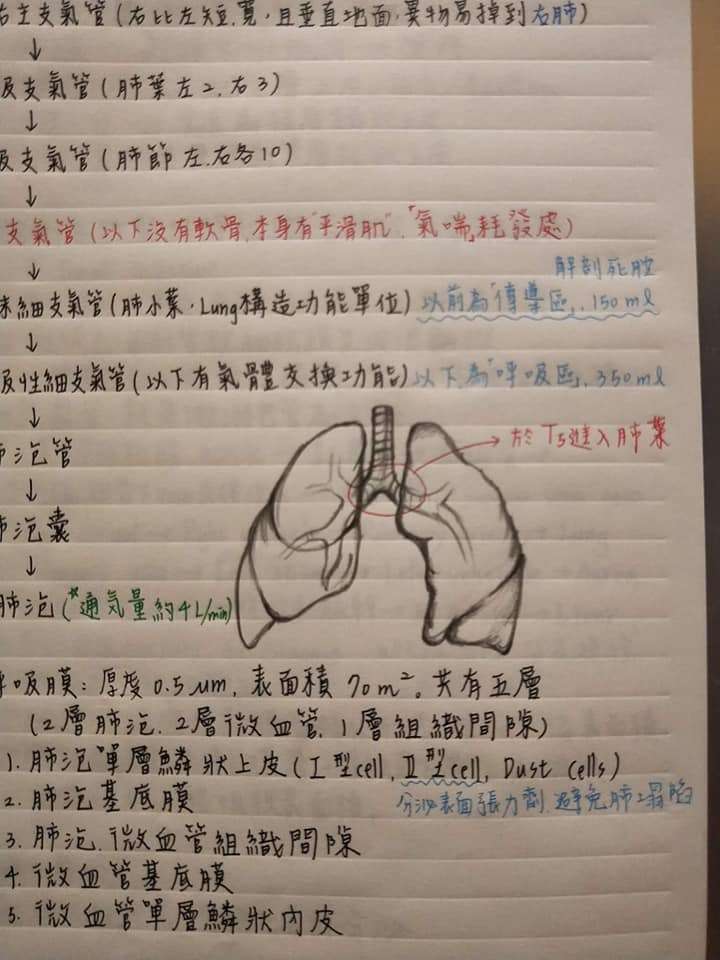 右主支氣管(右比左短.寬,且垂直地面,異物易掉到右肺)
↓
及支氣管(肺葉左2,右3)
↓
及支氣管(肺節 左.右各10)
↓
支氣管(以下沒有軟骨,本身有"平滑肌".「氣喘」耗發處)
↓
解剖死腔
末細支氣管(肺小葉.Lung構造功能單位)以前為「傳導區」. 150 ml
↓
及性細支氣管(以下有氣體交換功能)以下為「呼吸區」. 350 ml
↓
肺泡管
→於T5進入肺葉
↓
肺泡囊
↓
肺泡(*通氣量約4L/min)
呼吸膜:厚度 0.5 μm, 表面積 70 m²。共有五層
(2層肺泡.2層微血管.1層組織間隙)
1. 肺泡單層鱗狀上皮(I型cell, II型cell, Dust cells)
分泌表面張力劑.避免肺塌陷
2. 肺泡基底膜
3. 肺泡.微血管組織間隙
4. 微血管基底膜
5. 微血管單層鱗狀內皮